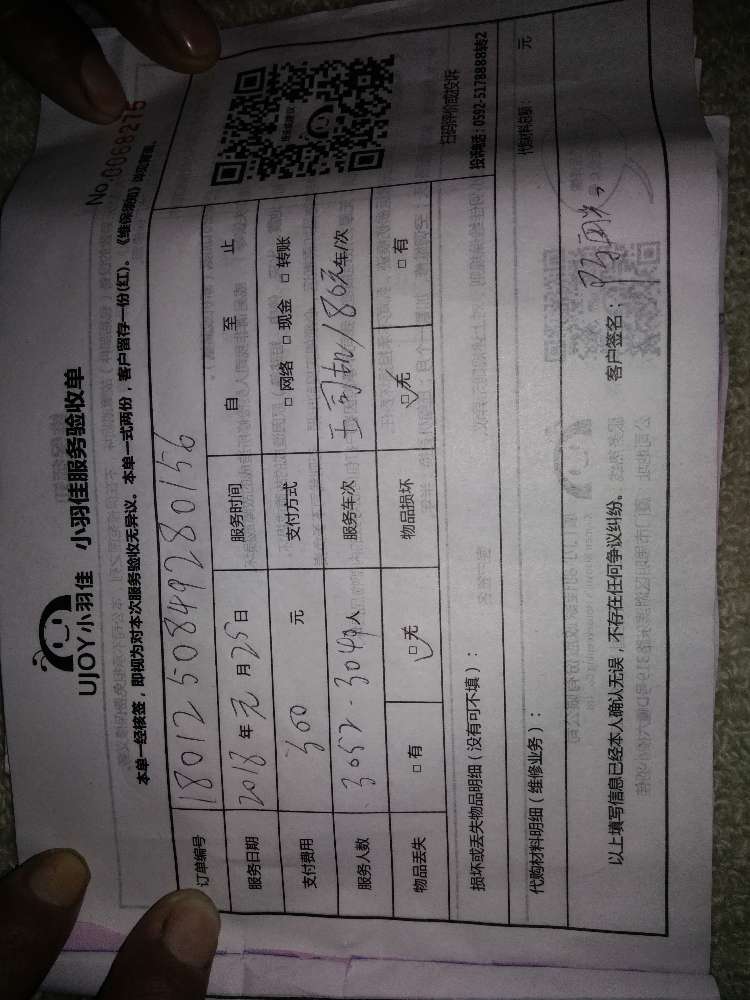 No.0068275
UJOY小羽佳 小羽佳服务验收单
本单一经核签，即视为对本次服务验收无异议。本单一式两份，客户留存一份(红)。《维保须知》详见背面。
订单编号 1801250849280156
服务日期 2018 年 元 月 25 日 服务时间 自 至 止
支付费用 300 元 支付方式 □ 网络 □ 现金 □ 转账
服务人数 3052-3049 人 服务车次 王司机/80元 车/次
物品丢失 □ 有 ☑ 无 物品损坏 ☑ 无 □ 有
损坏或丢失物品明细（没有可不填）：
扫码评价或投诉
投诉电话：0592-5178888转2
代购材料明细（维修业务）： 代购材料总额： 元
以上填写信息已经本人确认无误，不存在任何争议纠纷。 客户签名：